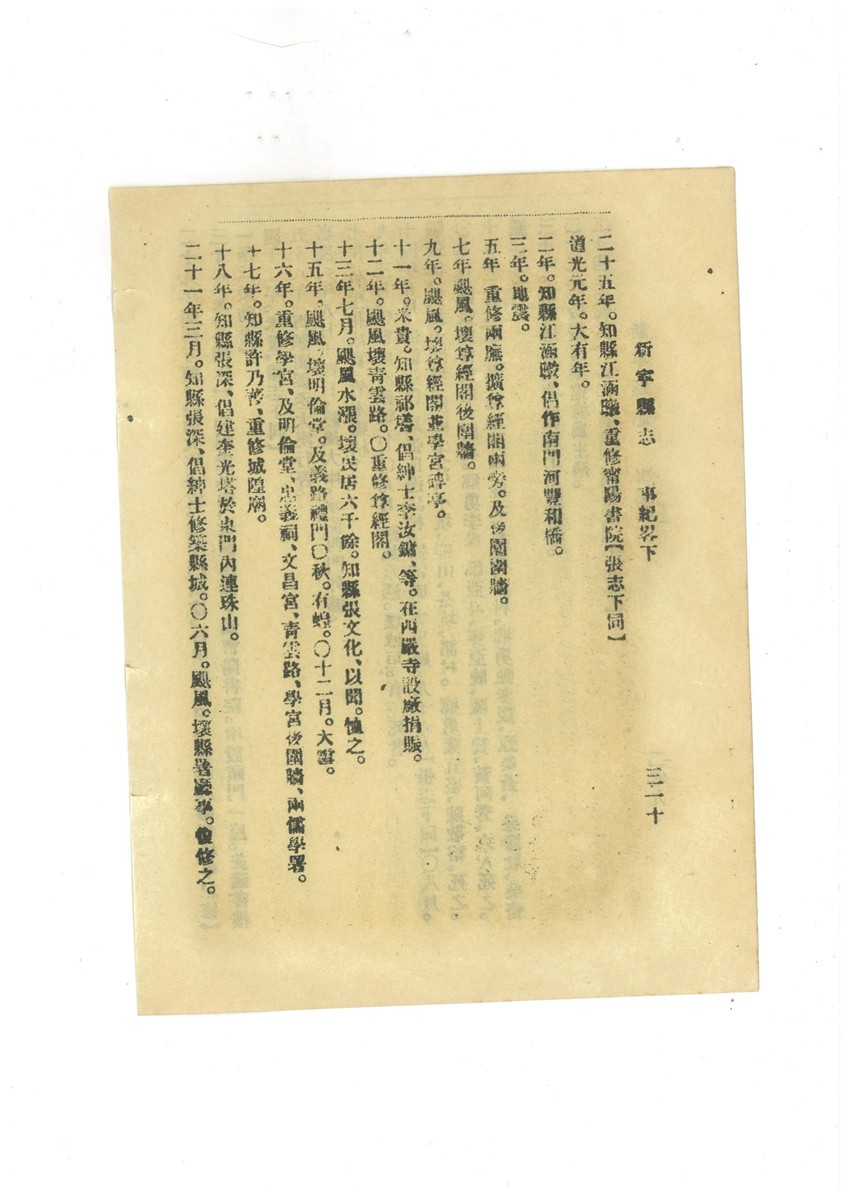 新寧縣志　事紀畧下　三二十
二十五年。知縣江涵暾、重修甯陽書院【張志下同】
道光元年。大有年。
二年。知縣江涵暾、倡作南門河豐和橋。
三年。地震。
五年　重修兩廡。擴尊經閣兩旁。及後圍牆。
七年颶風。壞尊經閣後圍牆。
九年。颶風。壞尊經閣並學宮碑亭。
十一年。米貴。知縣祁塔、倡紳士李汝鏞、等。在西巖寺設廠捐賑。
十二年。颶風壞靑雲路。〇重修尊經閣。
十三年七月。颶風水漲。壞民居六千餘。知縣張文化、以聞。恤之。
十五年、颶風。壞明倫堂。及義路禮門〇秋。有蝗。〇十二月。大雷。
十六年。重修學宮、及明倫堂、忠義祠、文昌宮、靑雲路、學宮後圍牆、兩儒學署。
十七年。知縣許乃、重修城隍廟。
十八年。知縣張深、倡建奎光塔於東門內連珠山。
二十一年三月。知縣張深、倡紳士修築縣城。〇六月。颶風。壞縣署廳事。復修之。